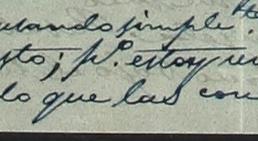 ulando simplete.
sto; p.º estoy
lo que las con